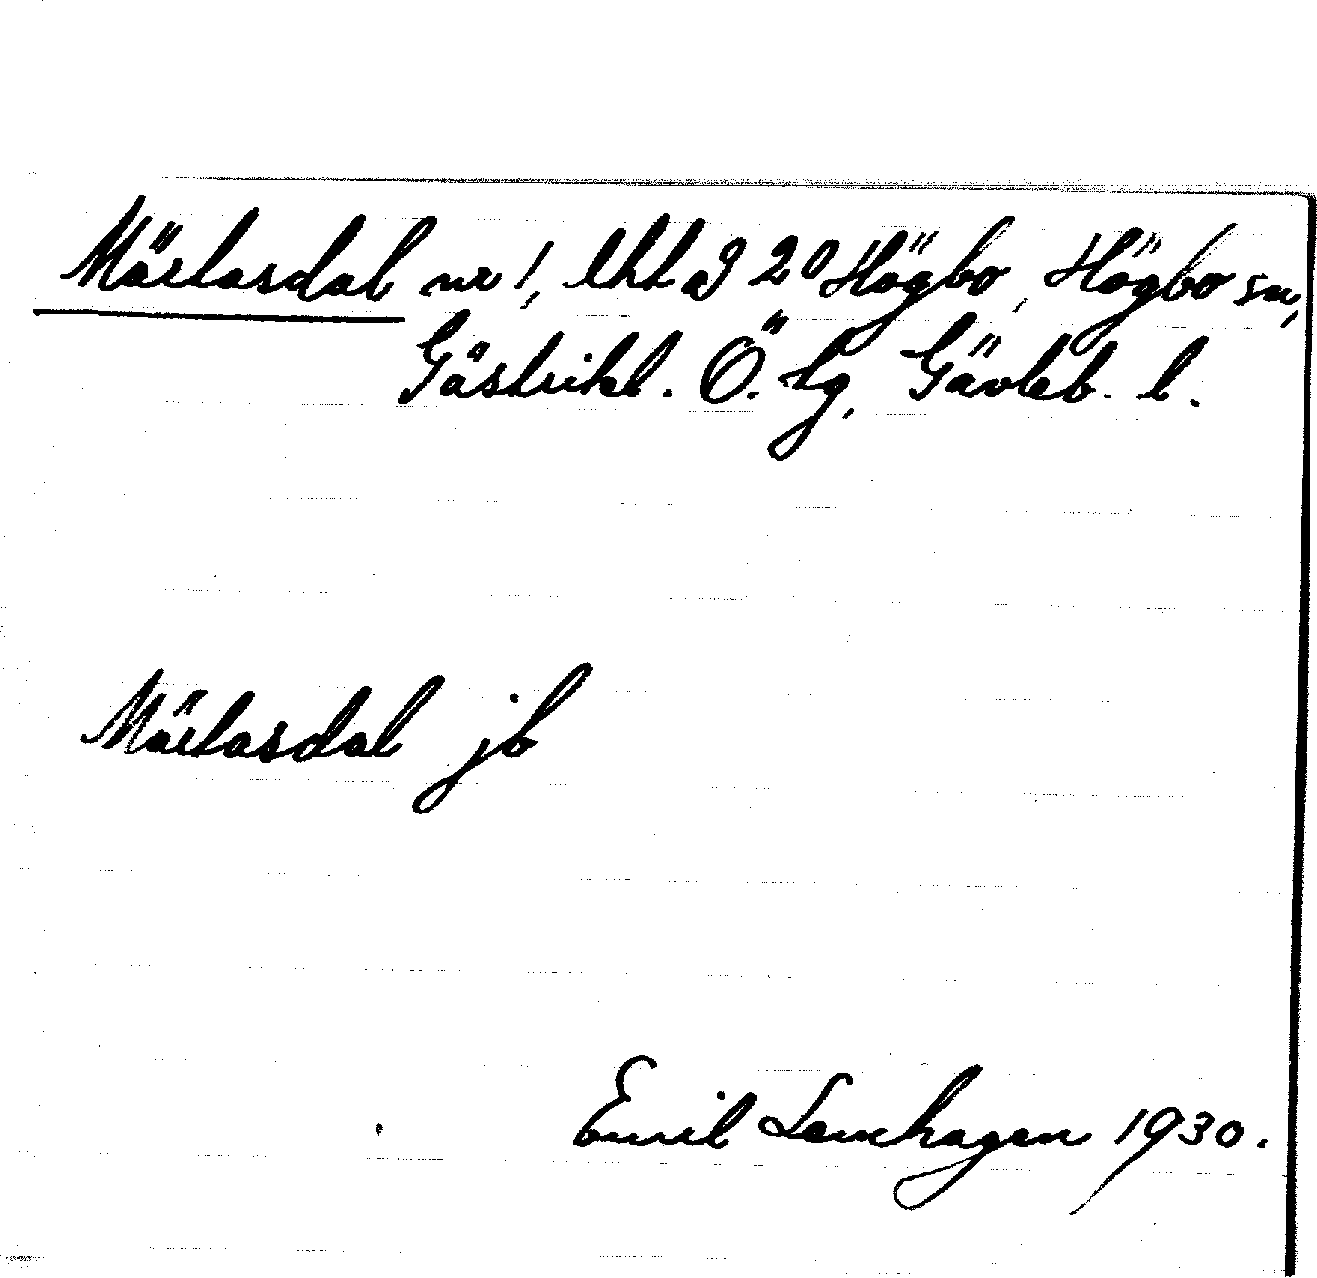 Märtasdal nr 1, lht a3 20 Högbo, Högbo sn,
Gästrikl. Ö. tg, Gävleb. l.
Märtasdal jb
Emil Lamhagen 1930.